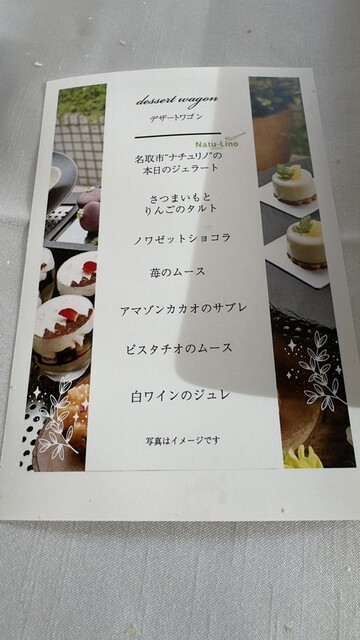 dessert wagon
デザートワゴン
Natu-Lino
名取市"ナチュリノ"の
本日のジェラート
さつまいもと
りんごのタルト
ノワゼットショコラ
苺のムース
アマゾンカカオのサブレ
ピスタチオのムース
白ワインのジュレ
写真はイメージです